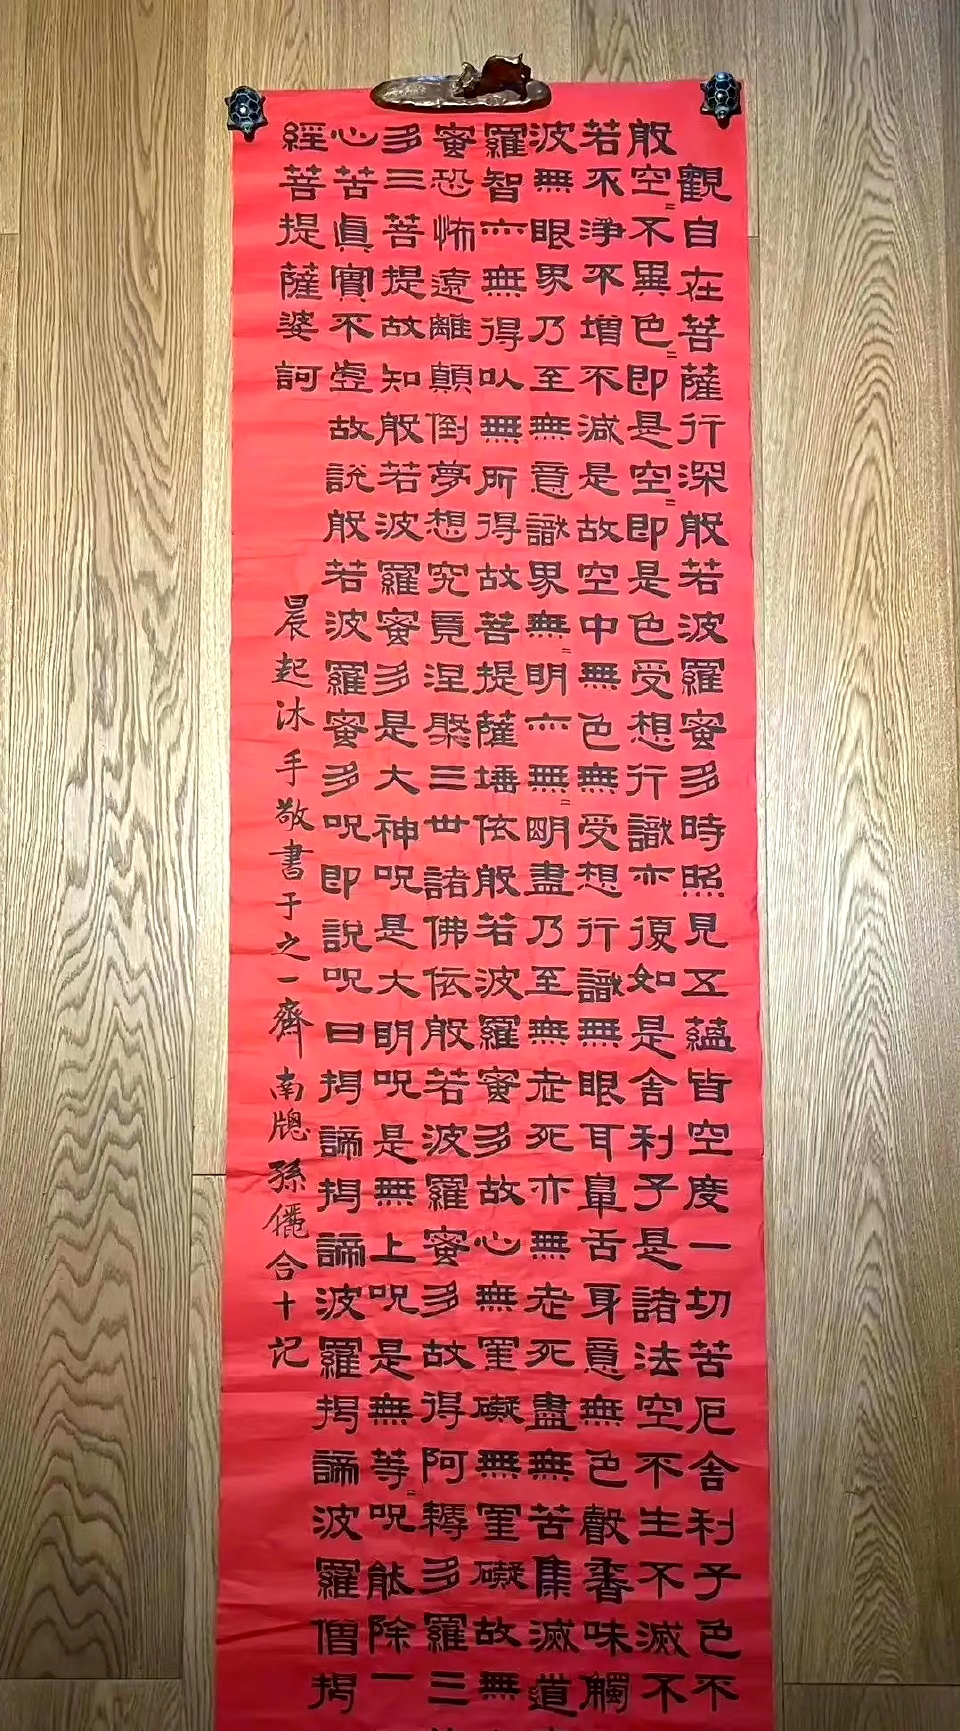 般若波羅蜜多心經
觀自在菩薩行深般若波羅蜜多時照見五蘊皆空度一切苦厄舍利子色不
空〻不異色〻即是空〻即是色受想行識亦復如是舍利子是諸法空不生不滅不
不淨不增不減是故空中無色無受想行識無眼耳鼻舌身意無色聲香味觸
無眼界乃至無意識界無〻明亦無〻明盡乃至無老死亦無老死盡無苦集滅道
智亦無得以無所得故菩提薩埵依般若波羅蜜多故心無罣礙無罣礙故無
恐怖遠離顛倒夢想究竟涅槃三世諸佛依般若波羅蜜多故得阿耨多羅三
三菩提故知般若波羅蜜多是大神呪是大明呪是無上呪是無等〻呪能除一
苦真實不虛故說般若波羅蜜多呪即說呪曰揭諦揭諦波羅揭諦波羅僧揭
菩提薩婆訶
晨起沐手敬書于之一齋 南牕孫儷合十記